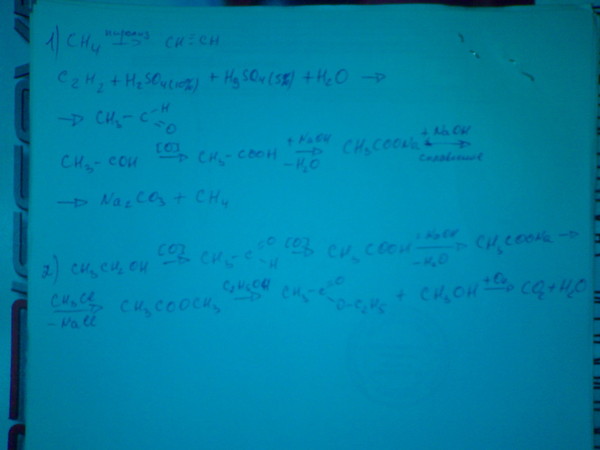 1) CH₄ пиролиз → CH≡CH
C₂H₂ + H₂SO₄(10%) + HgSO₄(5%) + H₂O →
→ CH₃-C H O
CH₃-COH [O] → CH₃-COOH +NaOH → -H₂O CH₃COONa +NaOH → сплавление
→ Na₂CO₃ + CH₄
2) CH₃CH₂OH [O] → CH₃-C O H [O] → CH₃COOH +NaOH → -H₂O CH₃COONa →
CH₃Cl → -NaCl CH₃COOCH₃ C₂H₅OH → CH₃-C O O-C₂H₅ + CH₃OH +O₂ → CO₂+H₂O